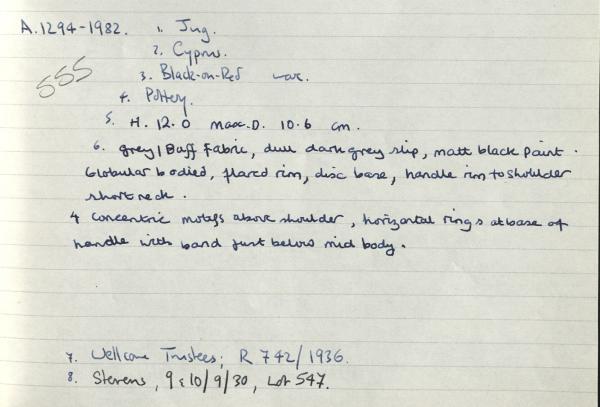 A.1294-1982. 1. Jug.
2. Cyprus.
555
3. Black-on-Red ware.
4. Pottery.
5. H. 12.0 max.D. 10.6 cm.
6. grey/Buff Fabric, dull dark grey slip, matt black Paint.
Globular bodied, flared rim, disc base, handle rim to shoulder
short neck.
4 concentric motifs above shoulder, horizontal rings at base of
handle with band just below mid body.
7. Wellcome Trustees; R 742/1936.
8. Stevens, 9 & 10/9/30, Lot 547.